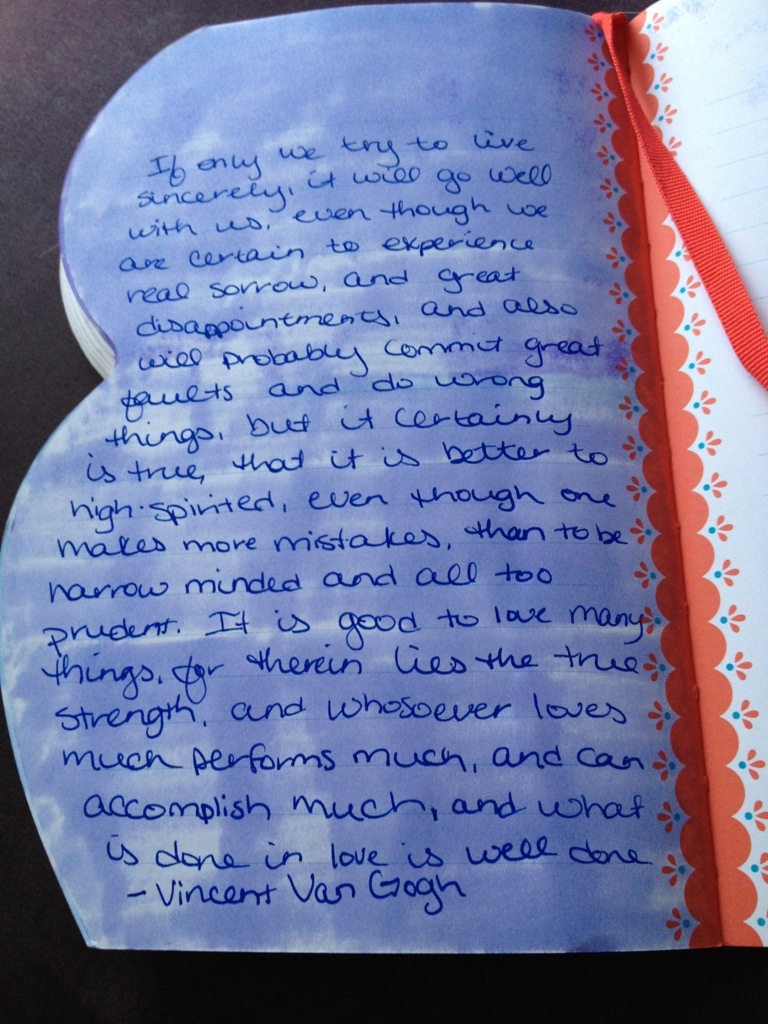 If only we try to live
sincerely, it will go well
with us, even though we
are certain to experience
real sorrow, and great
disappointments, and also
will probably commit great
faults and do wrong
things, but it certainly
is true, that it is better to
high-spirited, even though one
makes more mistakes, than to be
narrow minded and all too
prudent. It is good to love many
things, for therein lies the true
strength, and whosoever loves
much performs much, and can
accomplish much, and what
is done in love is well done
- Vincent Van Gogh